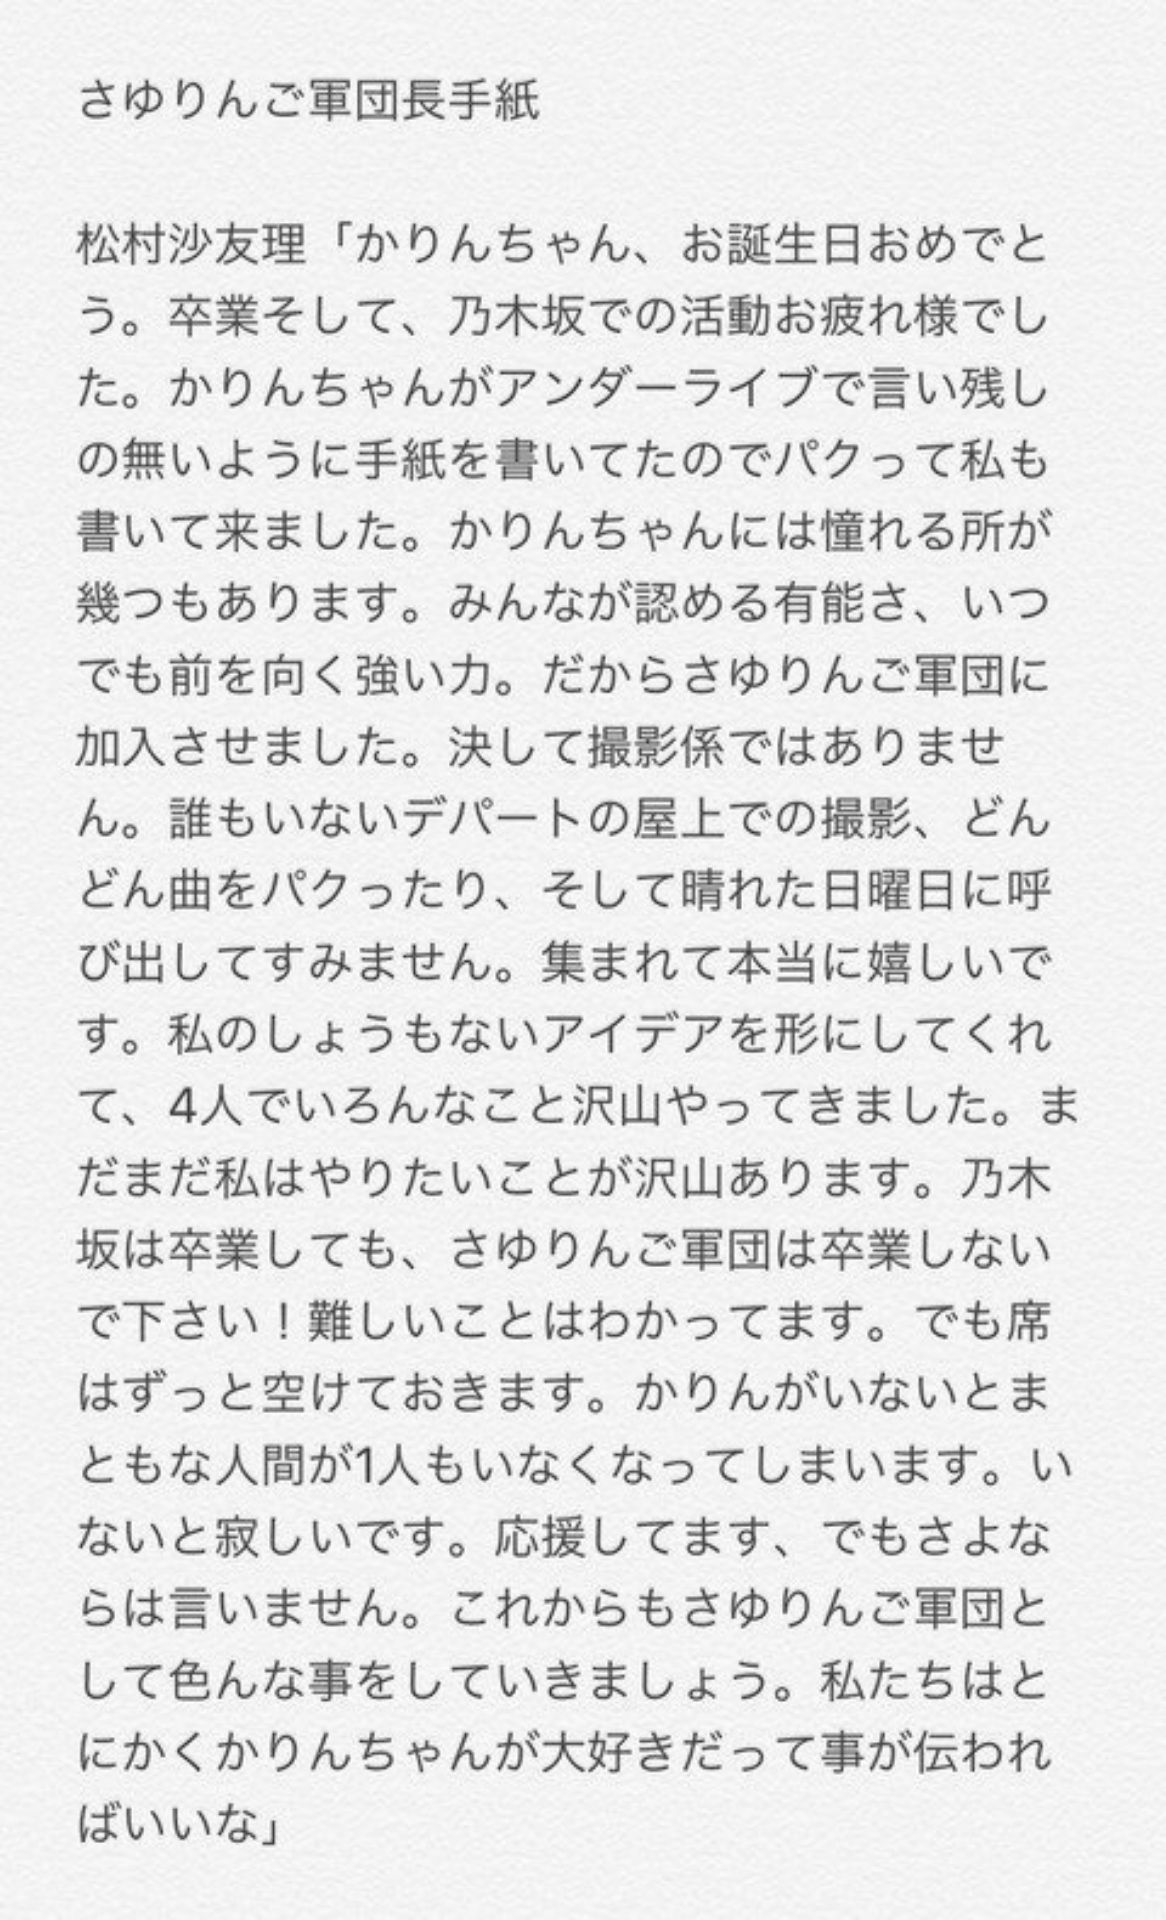 さゆりんご軍団長手紙
松村沙友理「かりんちゃん、お誕生日おめでと
う。卒業そして、乃木坂での活動お疲れ様でし
た。かりんちゃんがアンダーライブで言い残し
の無いように手紙を書いてたのでパクって私も
書いて来ました。かりんちゃんには憧れる所が
幾つもあります。みんなが認める有能さ、いつ
でも前を向く強い力。だからさゆりんご軍団に
加入させました。決して撮影係ではありませ
ん。誰もいないデパートの屋上での撮影、どん
どん曲をパクったり、そして晴れた日曜日に呼
び出してすみません。集まれて本当に嬉しいで
す。私のしょうもないアイデアを形にしてくれ
て、4人でいろんなこと沢山やってきました。ま
だまだ私はやりたいことが沢山あります。乃木
坂は卒業しても、さゆりんご軍団は卒業しない
で下さい！難しいことはわかってます。でも席
はずっと空けておきます。かりんがいないとま
ともな人間が1人もいなくなってしまいます。い
ないと寂しいです。応援してます、でもさよな
らは言いません。これからもさゆりんご軍団と
して色んな事をしていきましょう。私たちはと
にかくかりんちゃんが大好きだって事が伝われ
ばいいな」